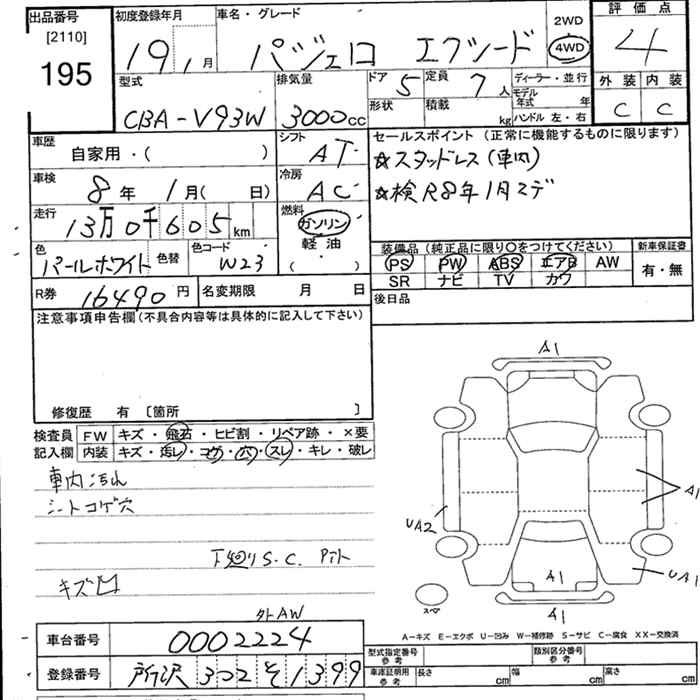 出品番号
[2110]
195
初度登録年月
19 1月
車名・グレード
パジェロ エクシード
2WD
4WD
評価点
4
外装 内装
C C
型式
CBA-V93W
排気量
3000cc
ドア 5
定員 7人
形状
積載 kg
ディーラー・並行
モデル年式 年
ハンドル 左・右
車歴
自家用・( )
シフト
AT
セールスポイント(正常に機能するものに限ります)
☆スタッドレス(車内)
☆検R8年1月マデ
車検
8年 1月( 日)
冷房
AC
走行
13万0千605km
燃料
ガソリン
軽油
・
( )
色
パールホワイト
色替
色コード
W23
装備品(純正品に限り○をつけてください)
PS PW ABS エアB AW
SR ナビ TV カワ
新車保証書
有・無
R券 16490円
名変期限 月 日
後日品
注意事項申告欄(不具合内容等は具体的に記入して下さい)
修復歴 有 〔箇所 〕
検査員記入欄
FW キズ・飛石・ヒビ割・リペア跡・×要
内装 キズ・汚レ・コゲ・穴・スレ・キレ・破レ
車内汚れ
シートコゲ穴
下廻りS.C.
キズ凹
外AW
A1
A1
UA2
UA1
A1
A1
スペア
A-キズ E-エクボ U-凹み W-補修跡 S-サビ C-腐食 XX-交換済
車台番号
0002224
登録番号
所沢 302 そ 1399
型式指定番号
参考
類別区分番号
参考
車庫証明用
参考
長さ cm
幅 cm
高さ cm